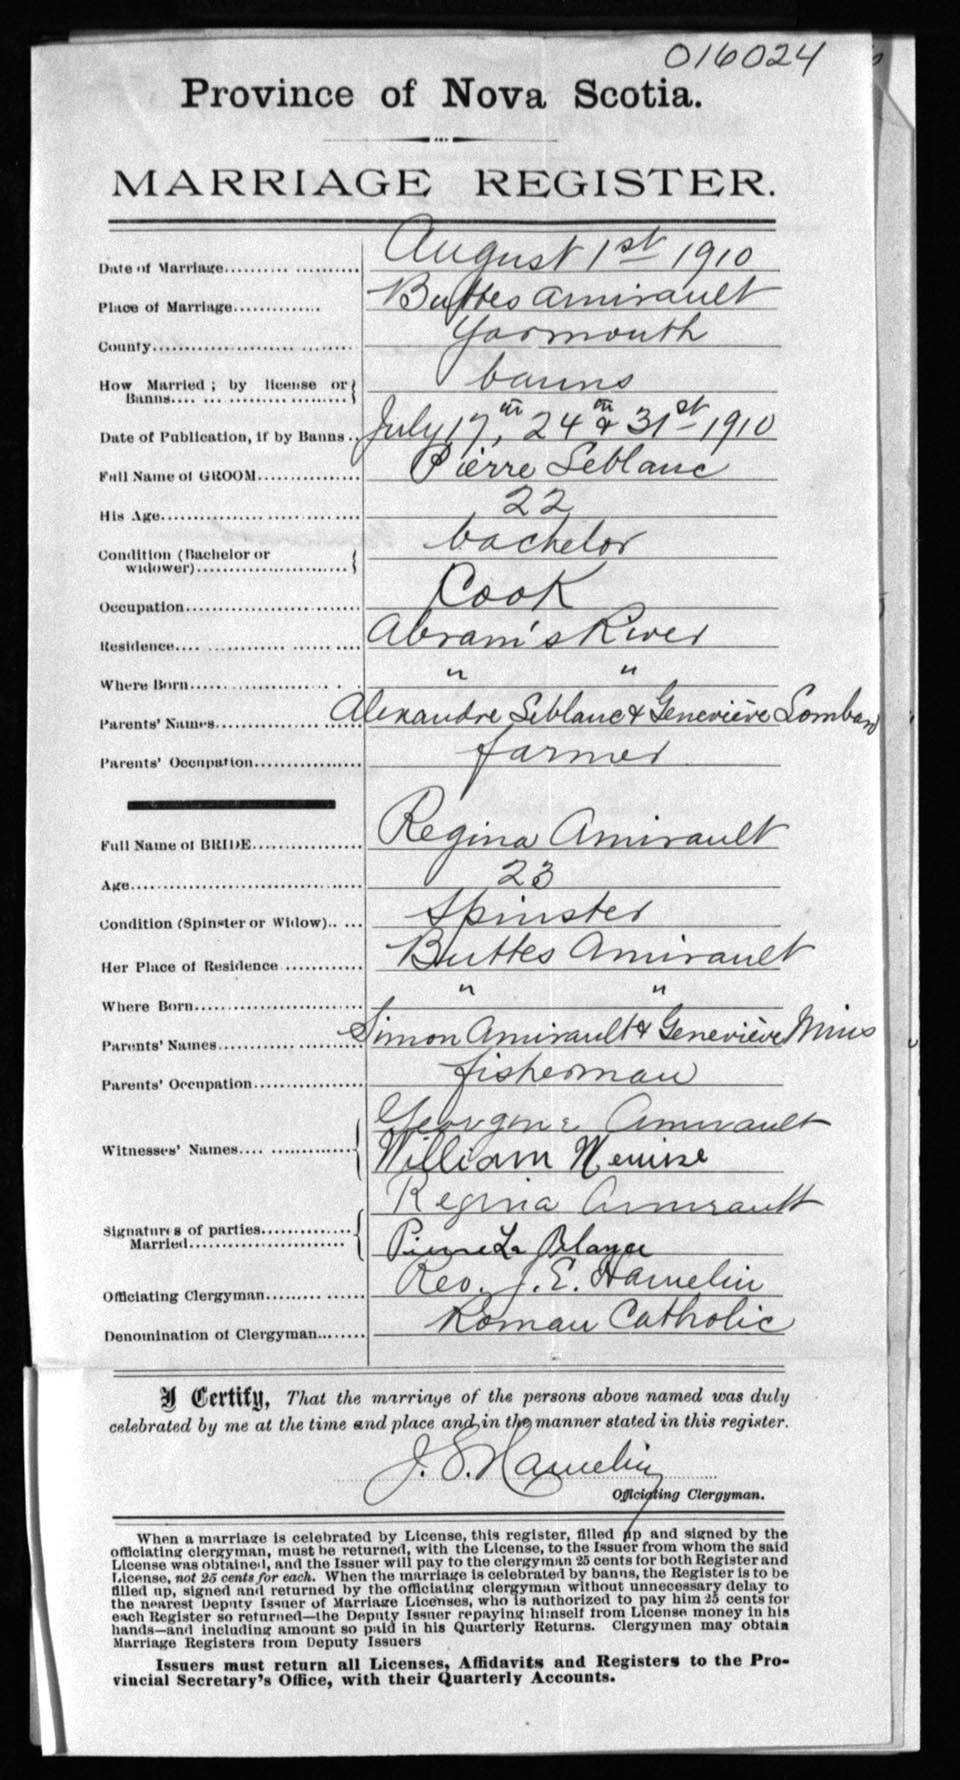 016024
Province of Nova Scotia.
MARRIAGE REGISTER.
Date of Marriage.......... .......... August 1st 1910
Place of Marriage............. Buttes Amirault
County.......................... Yarmouth
How Married; by license or
Banns.... ... ................... banns
Date of Publication, if by Banns .. July 17th, 24th & 31st 1910
Full Name of GROOM............... Pierre Leblanc
His Age............................. 22
Condition (Bachelor or
widower)......................... bachelor
Occupation.......................... Cook
Residence.... .................. ..... Abram's River
Where Born........................ " "
Parents' Names..................... Alexandre Leblanc & Geneviève Lombard
Parents' Occupation................. farmer
Full Name of BRIDE................. Regina Amirault
Age.................................. 23
Condition (Spinster or Widow).. ... Spinster
Her Place of Residence ............ Buttes Amirault
Where Born.......................... " "
Parents' Names...................... Simon Amirault & Geneviève Mius
Parents' Occupation................. fisherman
Georgine Amirault
Witnesses' Names.... ..............
William
Regina Amirault
Signatures of parties...............
Married......................... Pierre Le Blanc
Officiating Clergyman......... ....... Rev. J. E. Hamelin
Denomination of Clergyman.......... Roman Catholic
I Certify, That the marriage of the persons above named was duly
celebrated by me at the time and place and in the manner stated in this register.
J. E. Hamelin
Officiating Clergyman.
When a marriage is celebrated by License, this register, filled up and signed by the
officiating clergyman, must be returned, with the License, to the Issuer from whom the said
License was obtained, and the Issuer will pay to the clergyman 25 cents for both Register and
License, not 25 cents for each. When the marriage is celebrated by banns, the Register is to be
filled up, signed and returned by the officiating clergyman without unnecessary delay to
the nearest Deputy Issuer of Marriage Licenses, who is authorized to pay him 25 cents for
each Register so returned—the Deputy Issuer repaying himself from License money in his
hands—and including amount so paid in his Quarterly Returns. Clergymen may obtain
Marriage Registers from Deputy Issuers
Issuers must return all Licenses, Affidavits and Registers to the Pro-
vincial Secretary's Office, with their Quarterly Accounts.